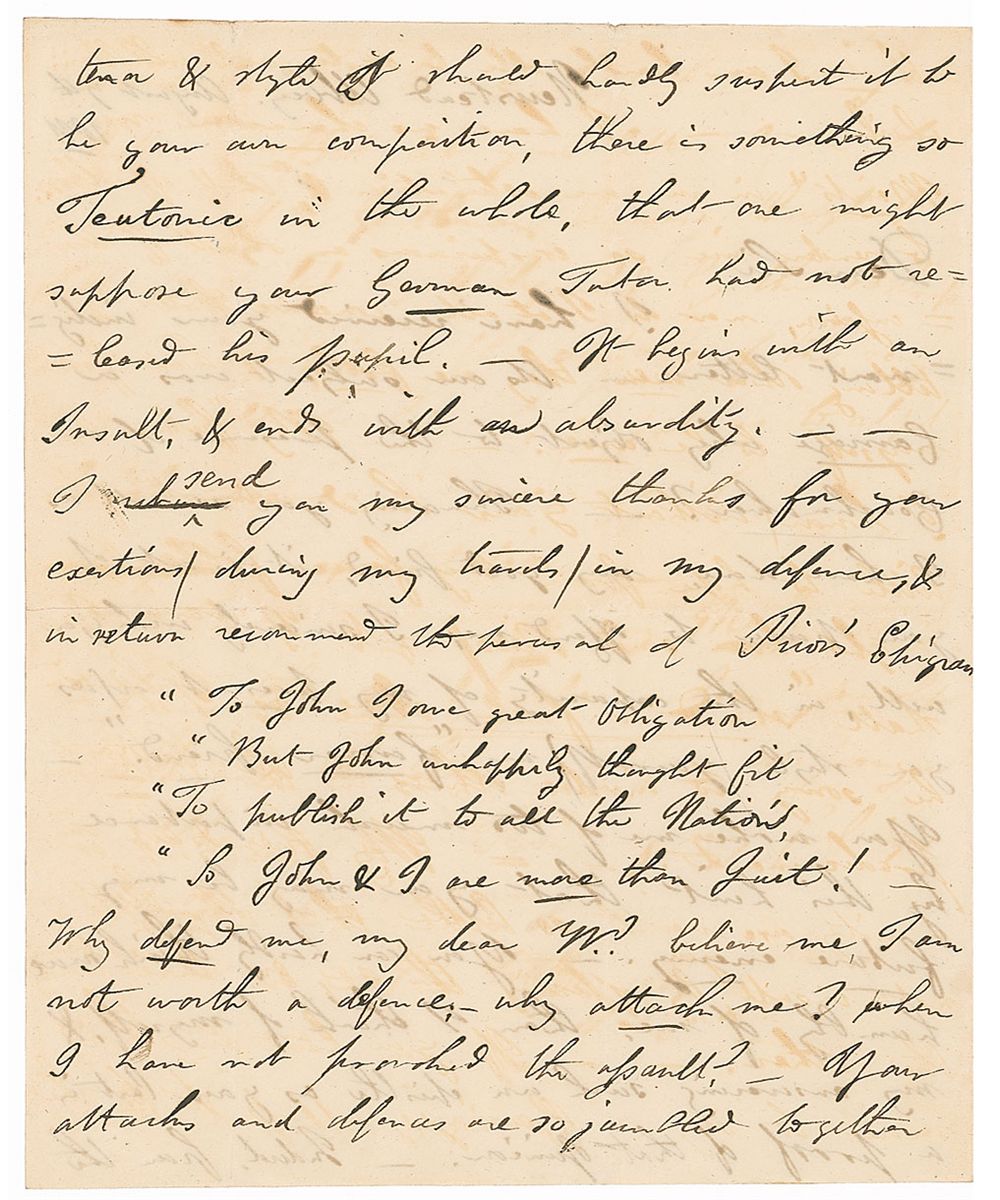 tenor & style I should hardly suspect it to
be your own composition, there is something so
Teutonic in the whole, that one might
suppose your German Tutor had not re=
=leased his pupil. — It begins with an
Insult, & ends with an absurdity. — —
send
I return you my sincere thanks for your
exertions / during my travels / in my defence, &
in return recommend the perusal of Prior's Epigram
" To John I owe great Obligation
" But John unhappily thought fit
" To publish it to all the Nation,
" So John & I are more than Quit! —
Why defend me, my dear W? believe me, I am
not worth a defence, — why attack me? when
I have not provoked the assault? — Your
attacks and defences are so jumbled together